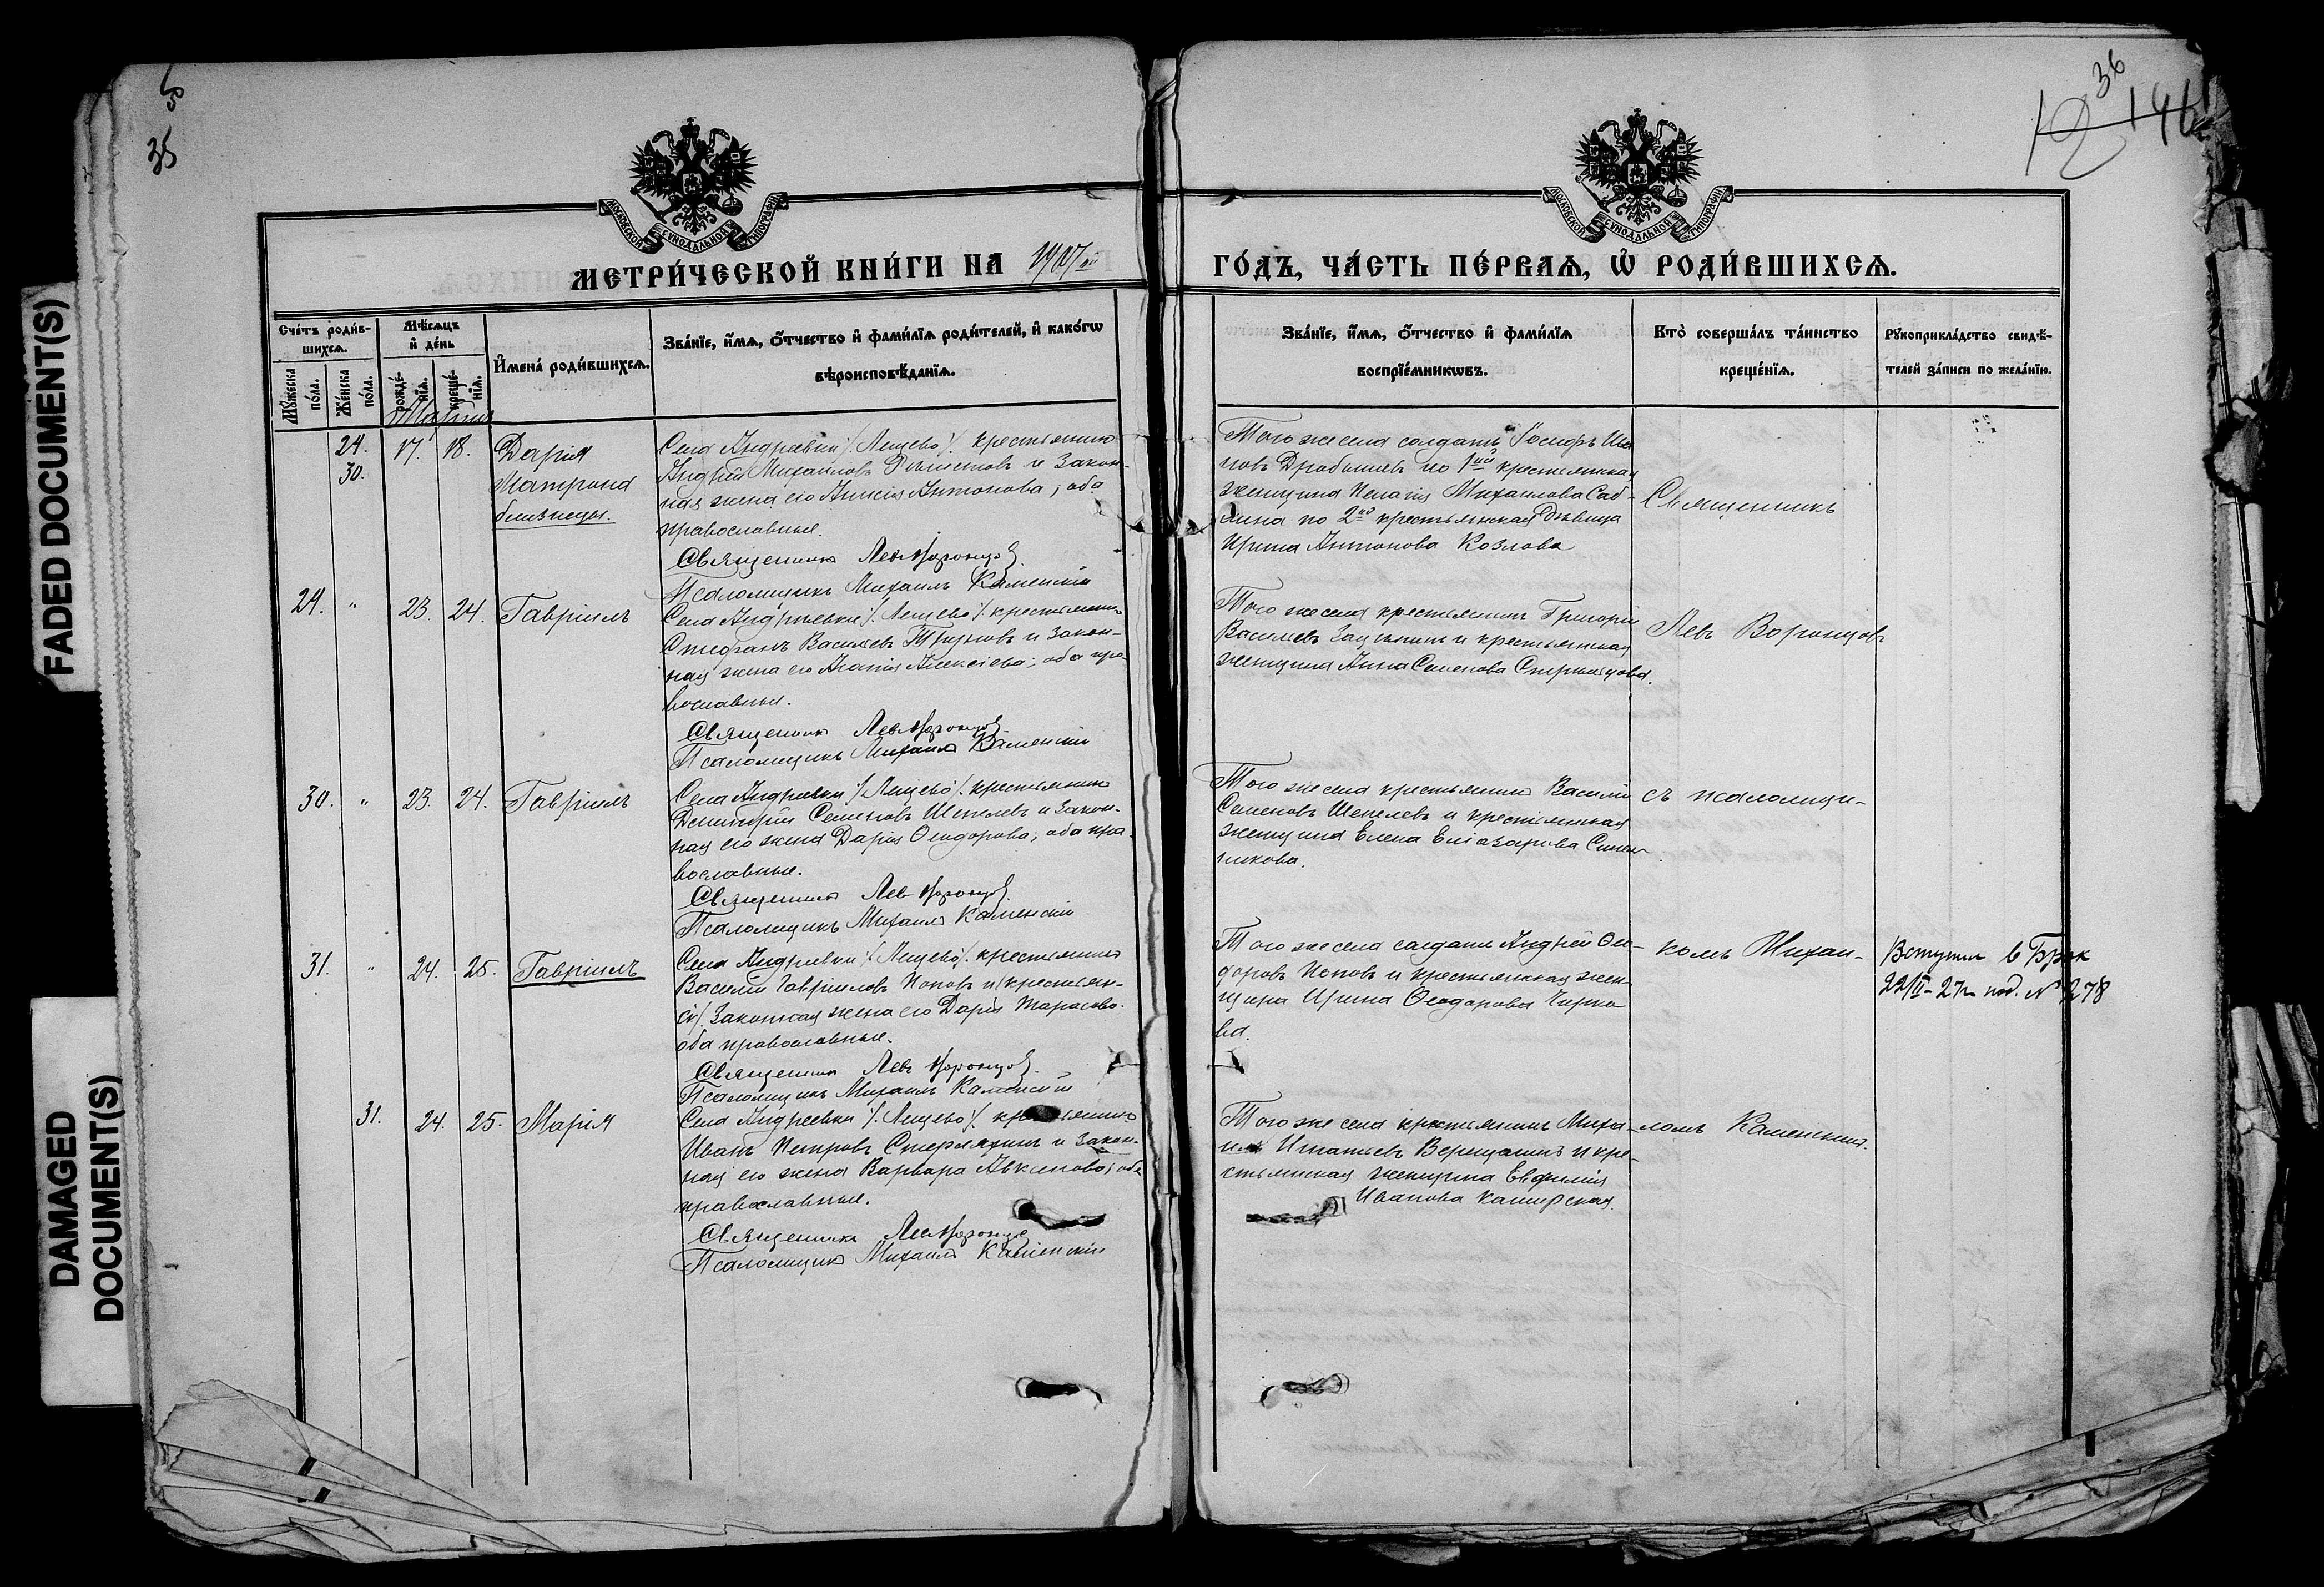 FADED DOCUMENT(S)
DAMAGED
DOCUMENT(S)
35
36
МОСКОВСКОЙ СѴНОДАЛЬНОЙ ТИПОГРАФІИ
МОСКОВСКОЙ СѴНОДАЛЬНОЙ ТИПОГРАФІИ
МЕТРИ́ЧЕСКОЙ КНИ́ГИ НА 1907 ый
ГО́ДЪ, ЧА́СТЬ ПЕ́РВАѦ, Ѽ РОДИ́ВШИХСѦ.
Сче́тъ роди́в-
шихсѧ.
Мꙋ́жеска по́ла.
Же́нска по́ла.
Мѣ́сѧцъ
и҆ де́нь
рожде́-
нїѧ.
креще́-
нїѧ.
И҆мена̀ роди́вшихсѧ.
Зва́нїе, и҆́мѧ, ѻ҆́тчество и҆ фами́лїѧ роди́телей, и҆ како́гѡ
вѣроисповѣ́данїѧ.
Зва́нїе, и҆́мѧ, ѻ҆́тчество и҆ фами́лїѧ
воспрїе́мникѡвъ.
Кто̀ соверша́лъ та́инство
креще́нїѧ.
Рꙋкоприкла́дство свидѣ́-
телей за́писи по жела́нїю.
Мартъ
29.
30.
17. 18.
Дарія
Матрона
близнецы.
Села Андреевки /. Лещево /. крестьянинъ
Андрей Михаиловъ и закон-
ная жена его Анисія Антонова; оба
православные.
Священникъ Левъ Воронцовъ
Псаломщикъ Михаилъ Каменскій
Того же села солдатъ Іосифъ Ива
новъ по 1ой крестьянская
женщина Пелагія Михаилова Саб-
лина по 2ой крестьянская дѣвица
Ирина Антонова Козлова
Священникъ
29. " 23. 24. Гавріилъ
Села Андреевки /. Лещево /. крестьянинъ
Стефанъ Васильевъ Труновъ и закон-
ная жена его Агапія Алексіева; оба пра-
вославные.
Священникъ Левъ Воронцовъ
Псаломщикъ Михаилъ Каменскій
Того же села крестьянинъ Григорій
Васильевъ и крестьянская
женщина Анна Семенова
Левъ Воронцовъ
30. " 23. 24. Гавріилъ
Села Андреевки /. Лещево /. крестьянинъ
Димитрій Семеновъ Шепелевъ и закон-
ная его жена Дарія Ѳеодорова; оба пра
вославные.
Священникъ Левъ Воронцовъ
Псаломщикъ Михаилъ Каменскій
Того же села крестьянинъ Василій
Семеновъ Шепелевъ и крестьянская
женщина Елена Еліазарова
съ псаломщи-
31. " 24. 25. Гавріилъ
Села Андреевки /. Лещево /. крестьянинъ
Василій Гавріиловъ Поповъ и
законная жена его Дарія Тарасова.
оба православные.
Священникъ Левъ Воронцовъ
Псаломщикъ Михаилъ Каменскій
Того же села солдатъ Андрей Ѳео-
доровъ Поповъ и крестьянская жен-
щина Ирина Ѳеодорова Чирко
ва.
комъ Михаи-
Вступил в Брак
22/II-27г под. № 278
31. 24. 25. Марія
Села Андреевки /. Лещево /. крестьянинъ
Иванъ Петровъ и закон-
ная его жена Варвара; оба
православные.
Священникъ Левъ Воронцовъ
Псаломщикъ Михаилъ Каменскій
Того же села крестьянинъ Миха-
илъ Игнатьевъ Верещагинъ и кре-
стьянская женщина Евфимія
Иванова Каширская.
ломъ Каменскимъ.